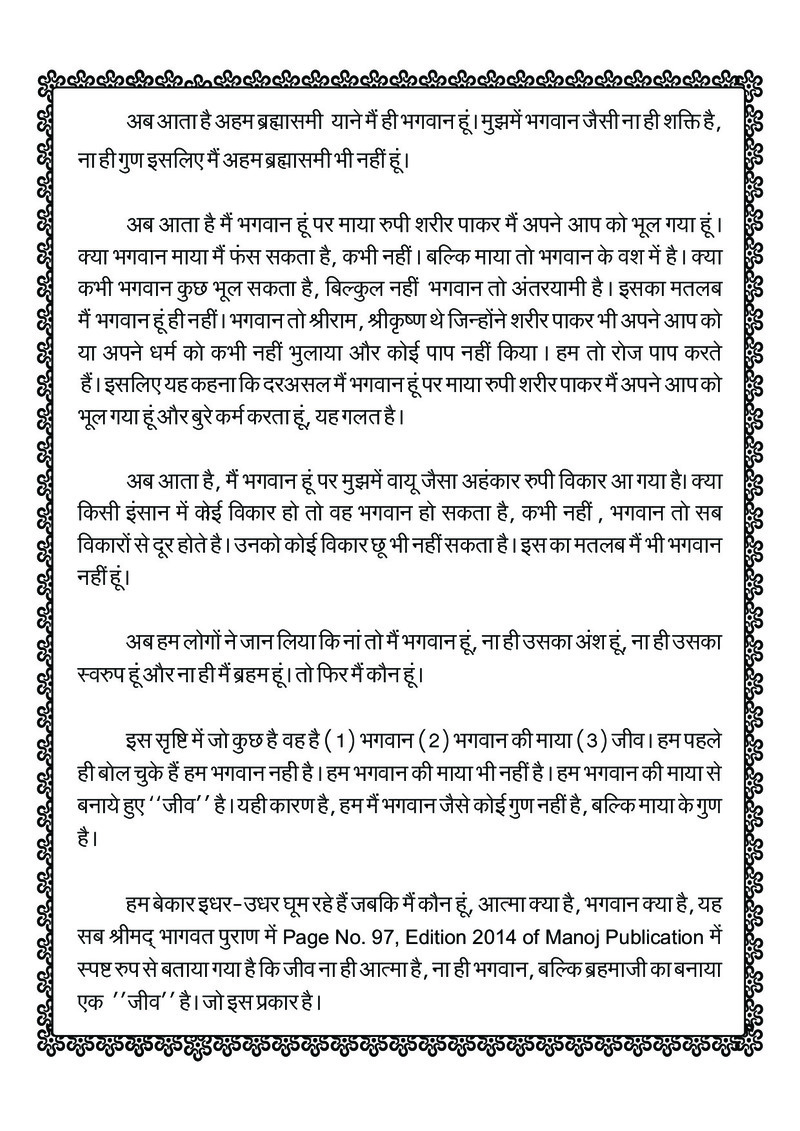 अब आता है अहम ब्रह्मासमी याने मैं ही भगवान हूं। मुझमें भगवान जैसी ना ही शक्ति है,
ना ही गुण इसलिए मैं अहम ब्रह्मासमी भी नहीं हूं।
अब आता है मैं भगवान हूं पर माया रुपी शरीर पाकर मैं अपने आप को भूल गया हूं।
क्या भगवान माया मैं फंस सकता है, कभी नहीं। बल्कि माया तो भगवान के वश में है। क्या
कभी भगवान कुछ भूल सकता है, बिल्कुल नहीं भगवान तो अंतरयामी है। इसका मतलब
मैं भगवान हूं ही नहीं। भगवान तो श्रीराम, श्रीकृष्ण थे जिन्होंने शरीर पाकर भी अपने आप को
या अपने धर्म को कभी नहीं भुलाया और कोई पाप नहीं किया। हम तो रोज पाप करते
हैं। इसलिए यह कहना कि दरअसल मैं भगवान हूं पर माया रुपी शरीर पाकर मैं अपने आप को
भूल गया हूं और बुरे कर्म करता हूं, यह गलत है।
अब आता है, मैं भगवान हूं पर मुझमें वायू जैसा अहंकार रुपी विकार आ गया है। क्या
किसी इंसान में कोई विकार हो तो वह भगवान हो सकता है, कभी नहीं , भगवान तो सब
विकारों से दूर होते है। उनको कोई विकार छू भी नहीं सकता है। इस का मतलब मैं भी भगवान
नहीं हूं।
अब हम लोगों ने जान लिया कि नां तो मैं भगवान हूं, ना ही उसका अंश हूं, ना ही उसका
स्वरुप हूं और ना ही मैं ब्रहम हूं। तो फिर मैं कौन हूं।
इस सृष्टि में जो कुछ है वह है (1) भगवान (2) भगवान की माया (3) जीव। हम पहले
ही बोल चुके हैं हम भगवान नही है। हम भगवान की माया भी नहीं है। हम भगवान की माया से
बनाये हुए ‘‘जीव’’ है। यही कारण है, हम मैं भगवान जैसे कोई गुण नहीं है, बल्कि माया के गुण
है।
हम बेकार इधर-उधर घूम रहे हैं जबकि मैं कौन हूं, आत्मा क्या है, भगवान क्या है, यह
सब श्रीमद् भागवत पुराण में Page No. 97, Edition 2014 of Manoj Publication में
स्पष्ट रुप से बताया गया है कि जीव ना ही आत्मा है, ना ही भगवान, बल्कि ब्रहमाजी का बनाया
एक ’’जीव’’ है। जो इस प्रकार है।